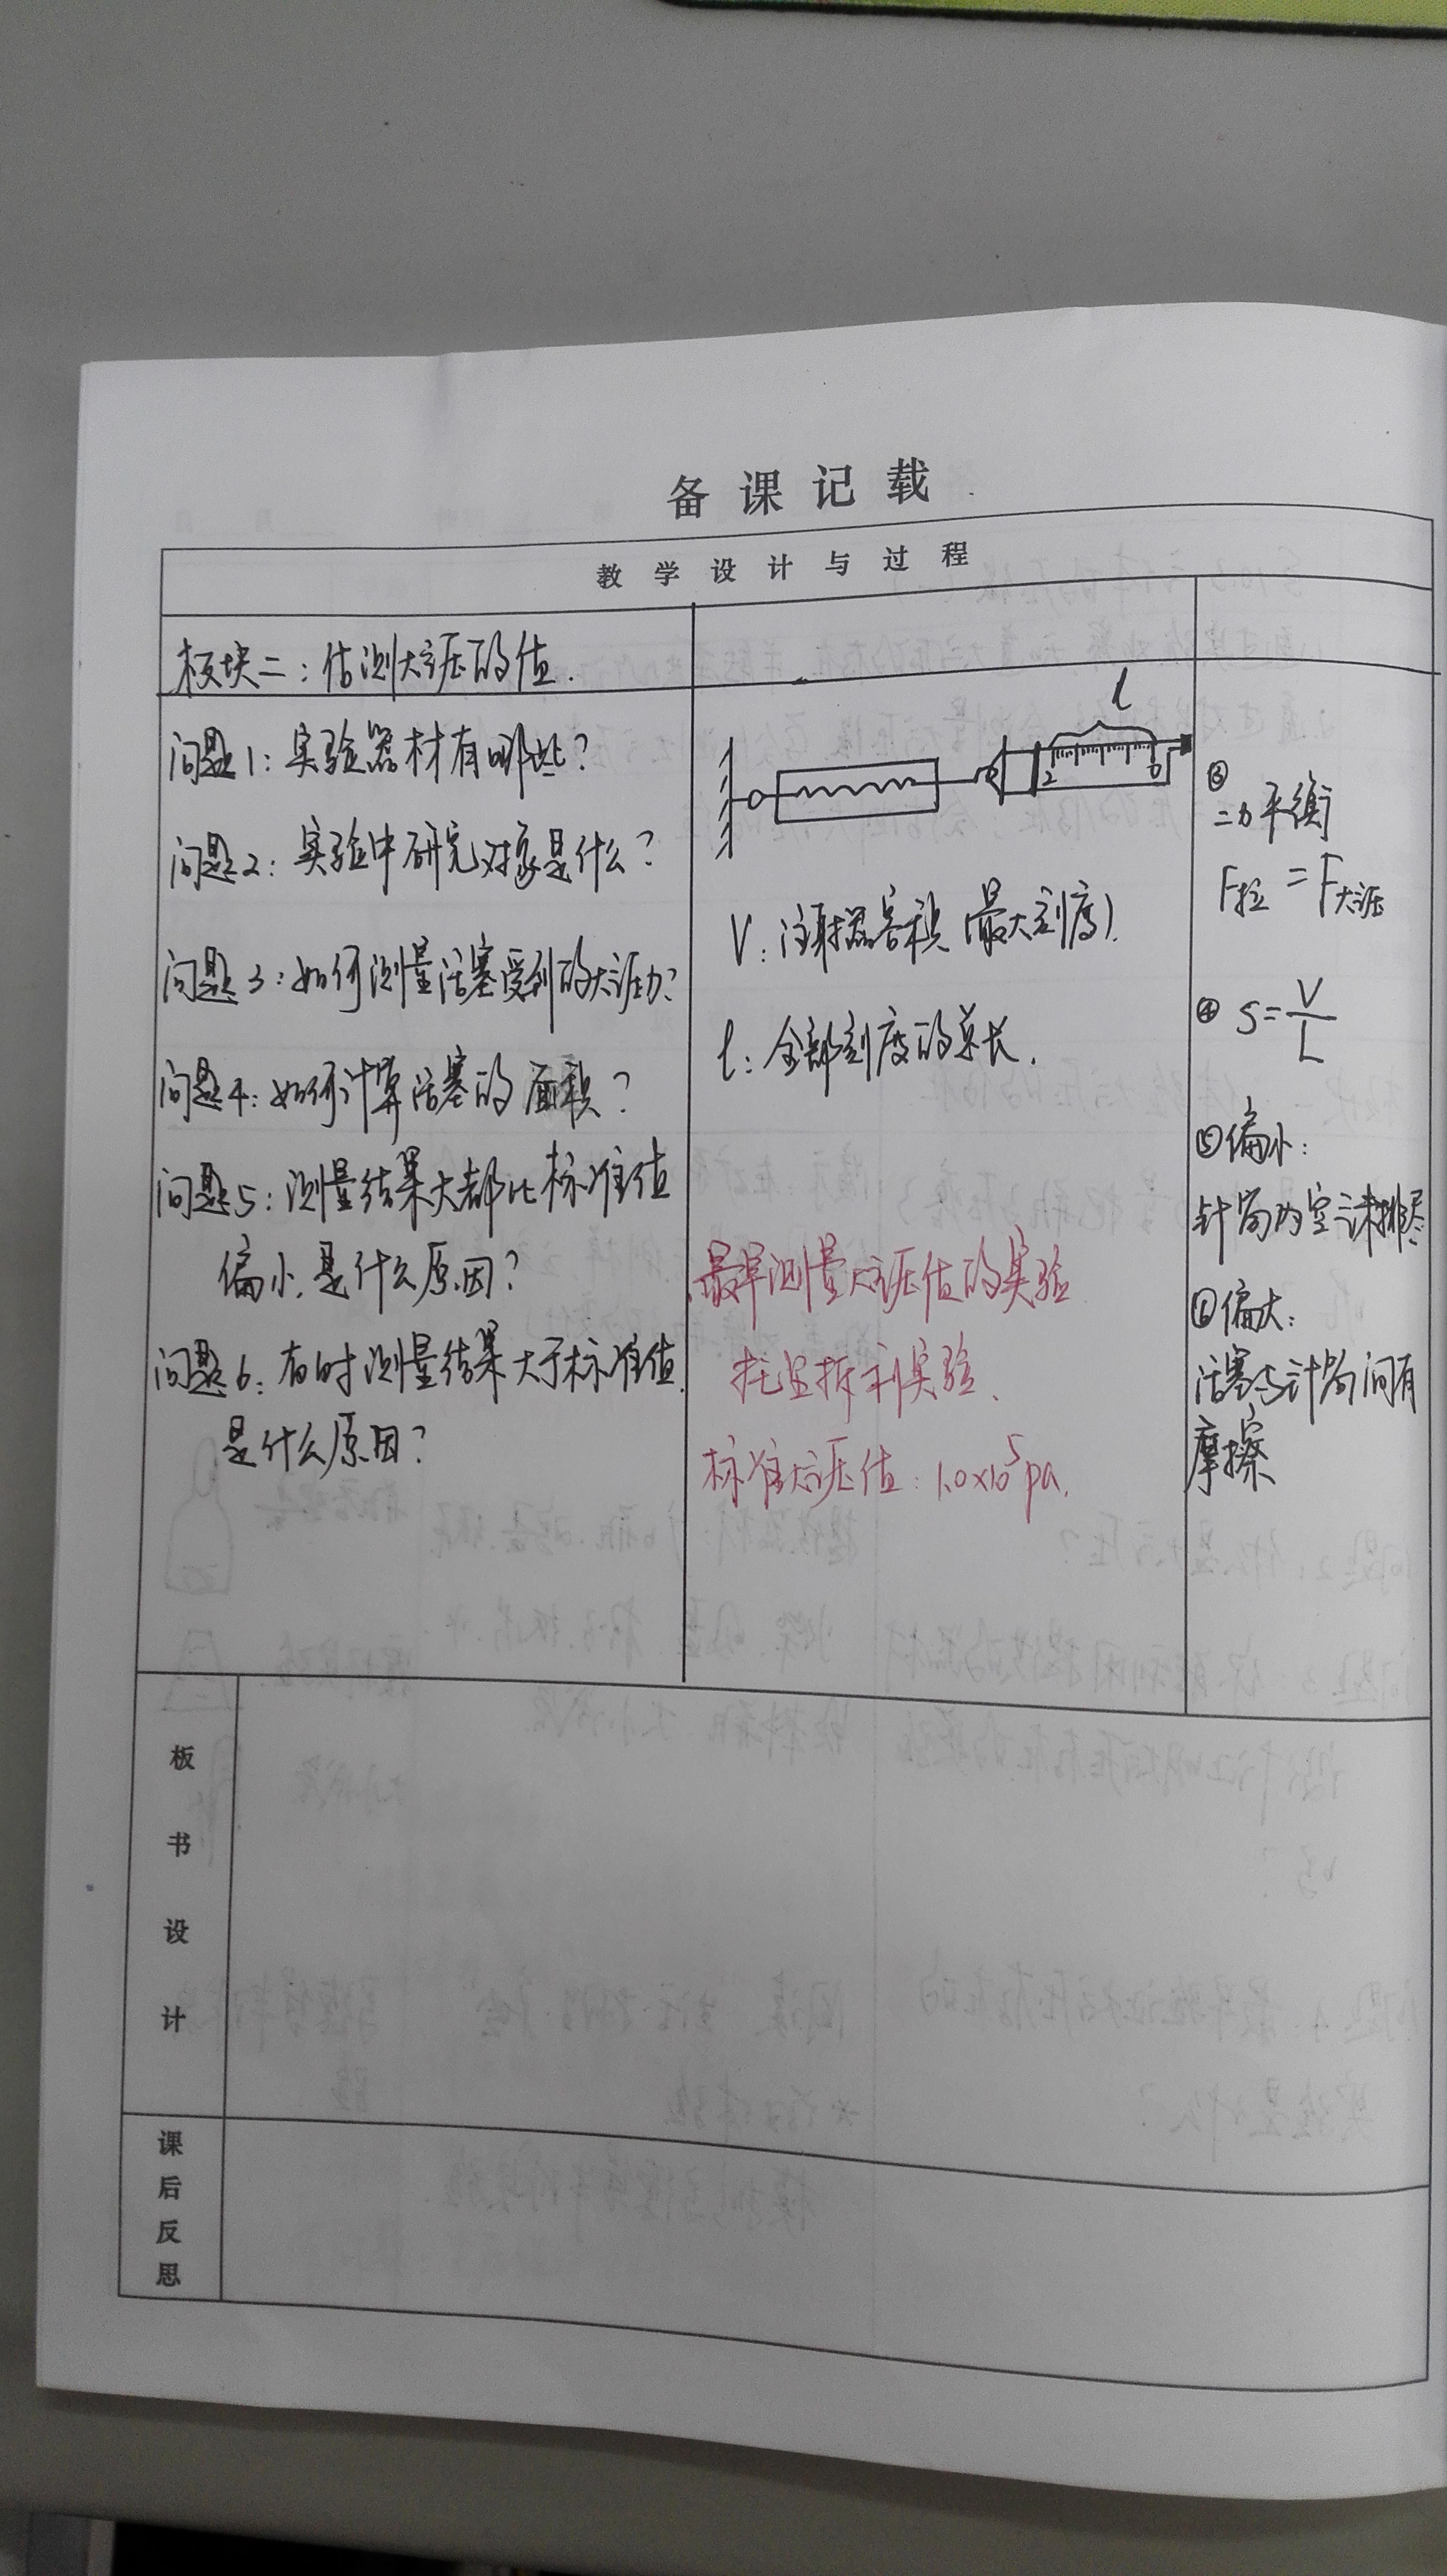 备课记载
教学设计与过程
板块二：估测大气压的值.
问题1：实验器材有哪些？
问题2：实验中研究对象是什么？
问题3：如何测量活塞受到的大气压力？
问题4：如何计算活塞的面积？
问题5：测量结果大都比标准值
偏小.是什么原因？
问题6：有时测量结果大于标准值.
是什么原因？
l
2
0
V：注射器容积(最大刻度).
l：全部刻度的总长.
最早测量大气压值的实验
托里拆利实验、
标准大气压值：1.0×10⁵pa.
③
二力平衡
F拉=F大气压
④ S=V/L
⑤偏小：
针筒内空气未排尽
⑥偏大：
活塞与针筒间有
摩擦
板
书
设
计
课
后
反
思